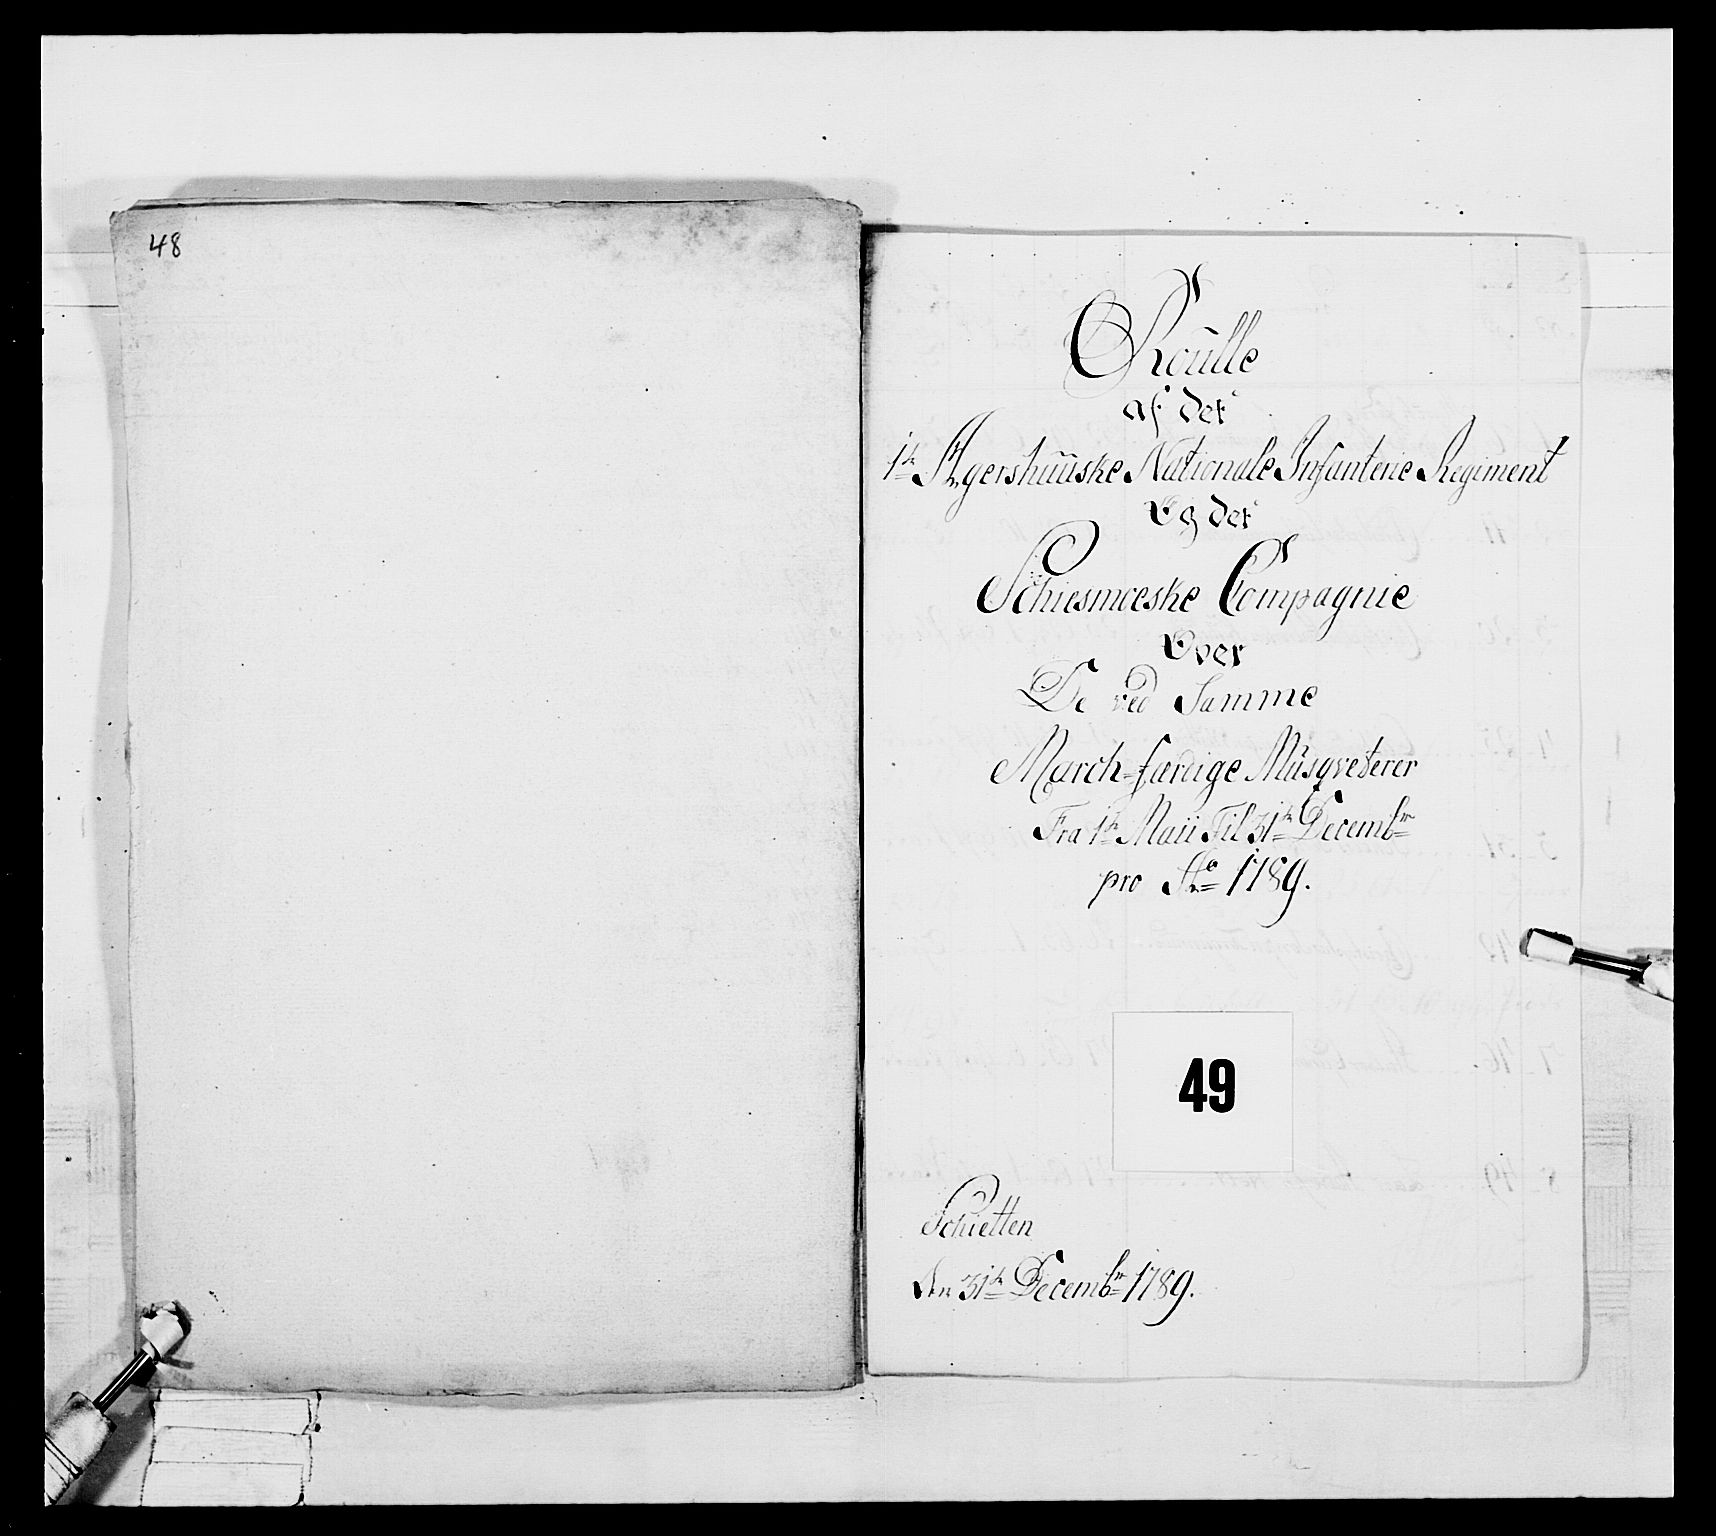 48
Roulle
af det
1te Agershuuske Nationale Infanterie Regiment
Og det
Schiesmoeske Compagnie
Over
De ved Samme
March-færdige Musqveterer
Fra 1te Maii Til 31te Decembr
pro Ao 1789.
49
Schietten
den 31te Decembr 1789.